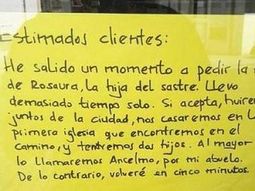 Estimados clientes:
He salido un momento a pedir la
de Rosaura, la hija del sastre. Llevo
demasiado tiempo solo. Si acepta, huire
juntos de la ciudad, nos casaremos en l
primera iglesia que encontremos en el
camino, y tendremos dos hijos. Al mayor
lo llamaremos Anselmo, por mi abuelo.
De lo contrario, volveré en cinco minutos.